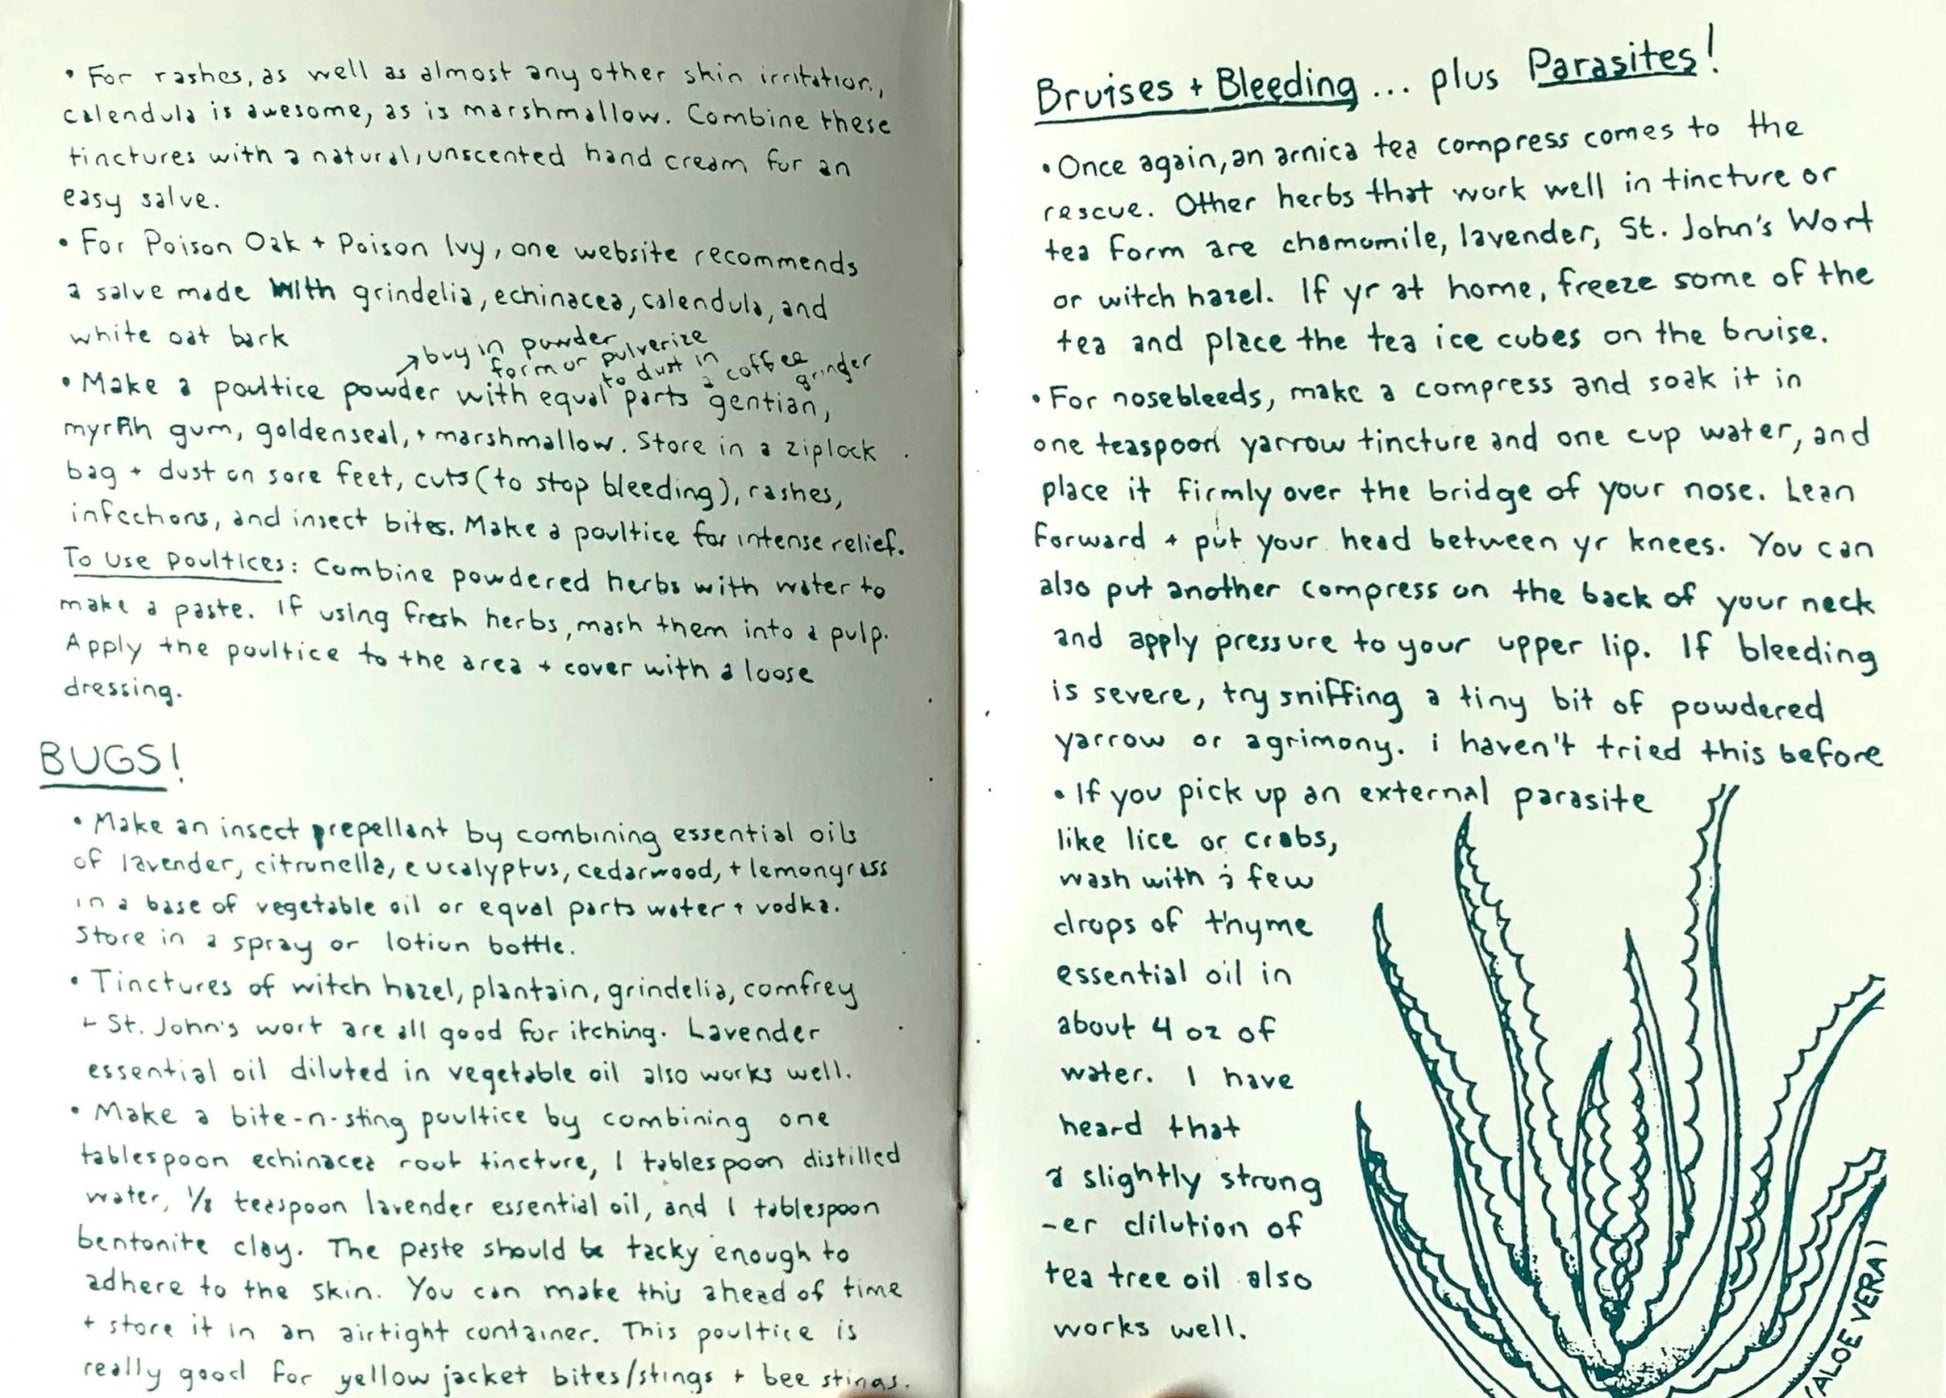 • For rashes, as well as almost any other skin irritation,
calendula is awesome, as is marshmallow. Combine these
tinctures with a natural, unscented hand cream for an
easy salve.
• For Poison Oak + Poison Ivy, one website recommends
a salve made with grindelia, echinacea, calendula, and
white oat bark
↗ buy in powder
form or pulverize
to dust in a coffee
grinder
• Make a poultice powder with equal parts gentian,
myrrh gum, goldenseal, + marshmallow. Store in a ziplock
bag + dust on sore feet, cuts (to stop bleeding), rashes,
infections, and insect bites. Make a poultice for intense relief.
To Use Poultices: Combine powdered herbs with water to
make a paste. If using fresh herbs, mash them into a pulp.
Apply the poultice to the area + cover with a loose
dressing.
BUGS!
• Make an insect repellant by combining essential oils
of lavender, citronella, eucalyptus, cedarwood, + lemongrass
in a base of vegetable oil or equal parts water + vodka.
Store in a spray or lotion bottle.
• Tinctures of witch hazel, plantain, grindelia, comfrey
+ St. John's wort are all good for itching. Lavender
essential oil diluted in vegetable oil also works well.
• Make a bite-n-sting poultice by combining one
tablespoon echinacea root tincture, 1 tablespoon distilled
water, 1/8 teaspoon lavender essential oil, and 1 tablespoon
bentonite clay. The paste should be tacky enough to
adhere to the skin. You can make this ahead of time
+ store it in an airtight container. This poultice is
really good for yellow jacket bites/stings + bee stings.
Bruises + Bleeding... plus Parasites!
• Once again, an arnica tea compress comes to the
rescue. Other herbs that work well in tincture or
tea form are chamomile, lavender, St. John's Wort
or witch hazel. If yr at home, freeze some of the
tea and place the tea ice cubes on the bruise.
• For nosebleeds, make a compress and soak it in
one teaspoon yarrow tincture and one cup water, and
place it firmly over the bridge of your nose. Lean
forward + put your head between yr knees. You can
also put another compress on the back of your neck
and apply pressure to your upper lip. If bleeding
is severe, try sniffing a tiny bit of powdered
yarrow or agrimony. i haven't tried this before
• If you pick up an external parasite
like lice or crabs,
wash with a few
drops of thyme
essential oil in
about 4 oz of
water. I have
heard that
a slightly strong
-er dilution of
tea tree oil also
works well.
(ALOE VERA)